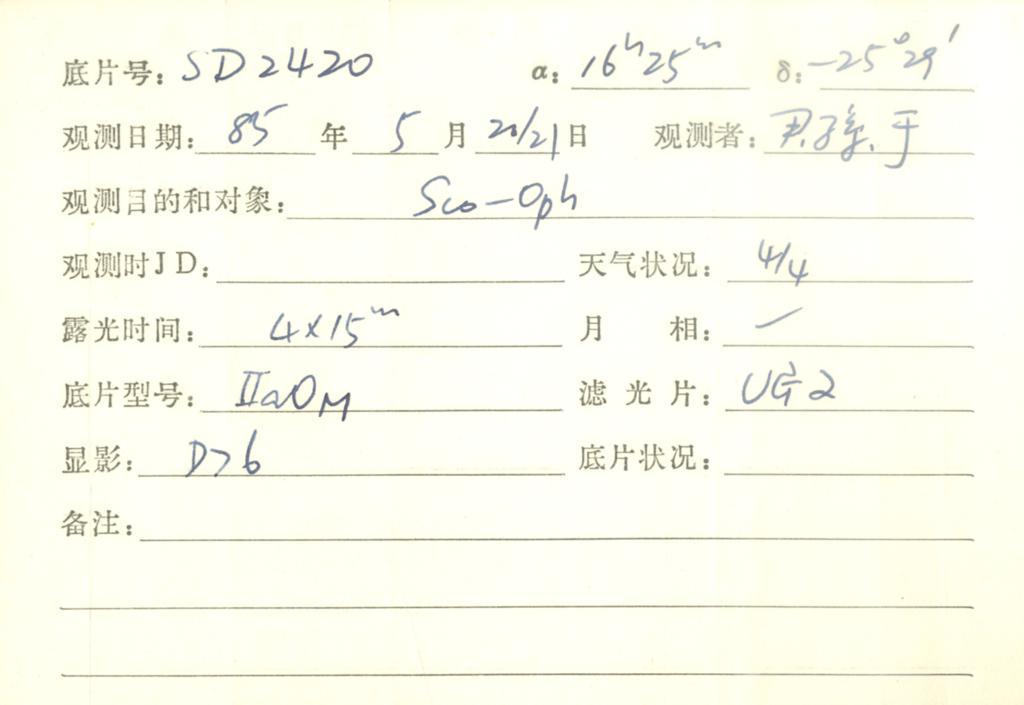 底片号: SD2420 α: 16ʰ25ᵐ δ: -25°29′
观测日期: 85 年 5 月 20/21 日 观测者: 尹.孙.于
观测目的和对象: Sco-Oph
观测时JD: 天气状况: 4/4
露光时间: 4×15ᵐ 月 相: —
底片型号: IIaO M 滤光片: UG2
显影: D76 底片状况:
备注: